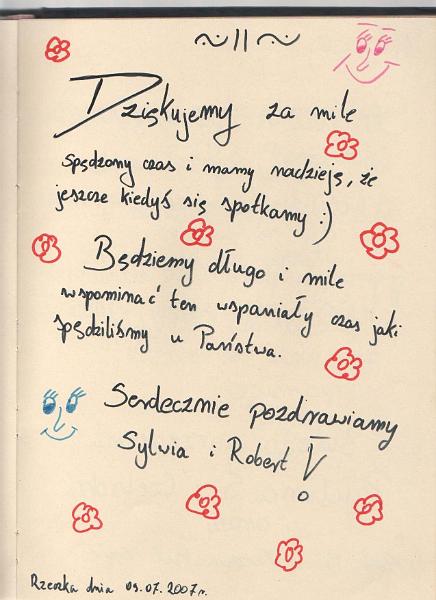 Dziękujemy za miłe
spędzony czas i mamy nadzieję, że
jeszcze kiedyś się spotkamy :)
Będziemy długo i mile
wspominać ten wspaniały czas jaki
spędziliśmy u Państwa.
Serdecznie pozdrawiamy
Sylwia i Robert!
Rzeczka dnia 09.07.2007r.